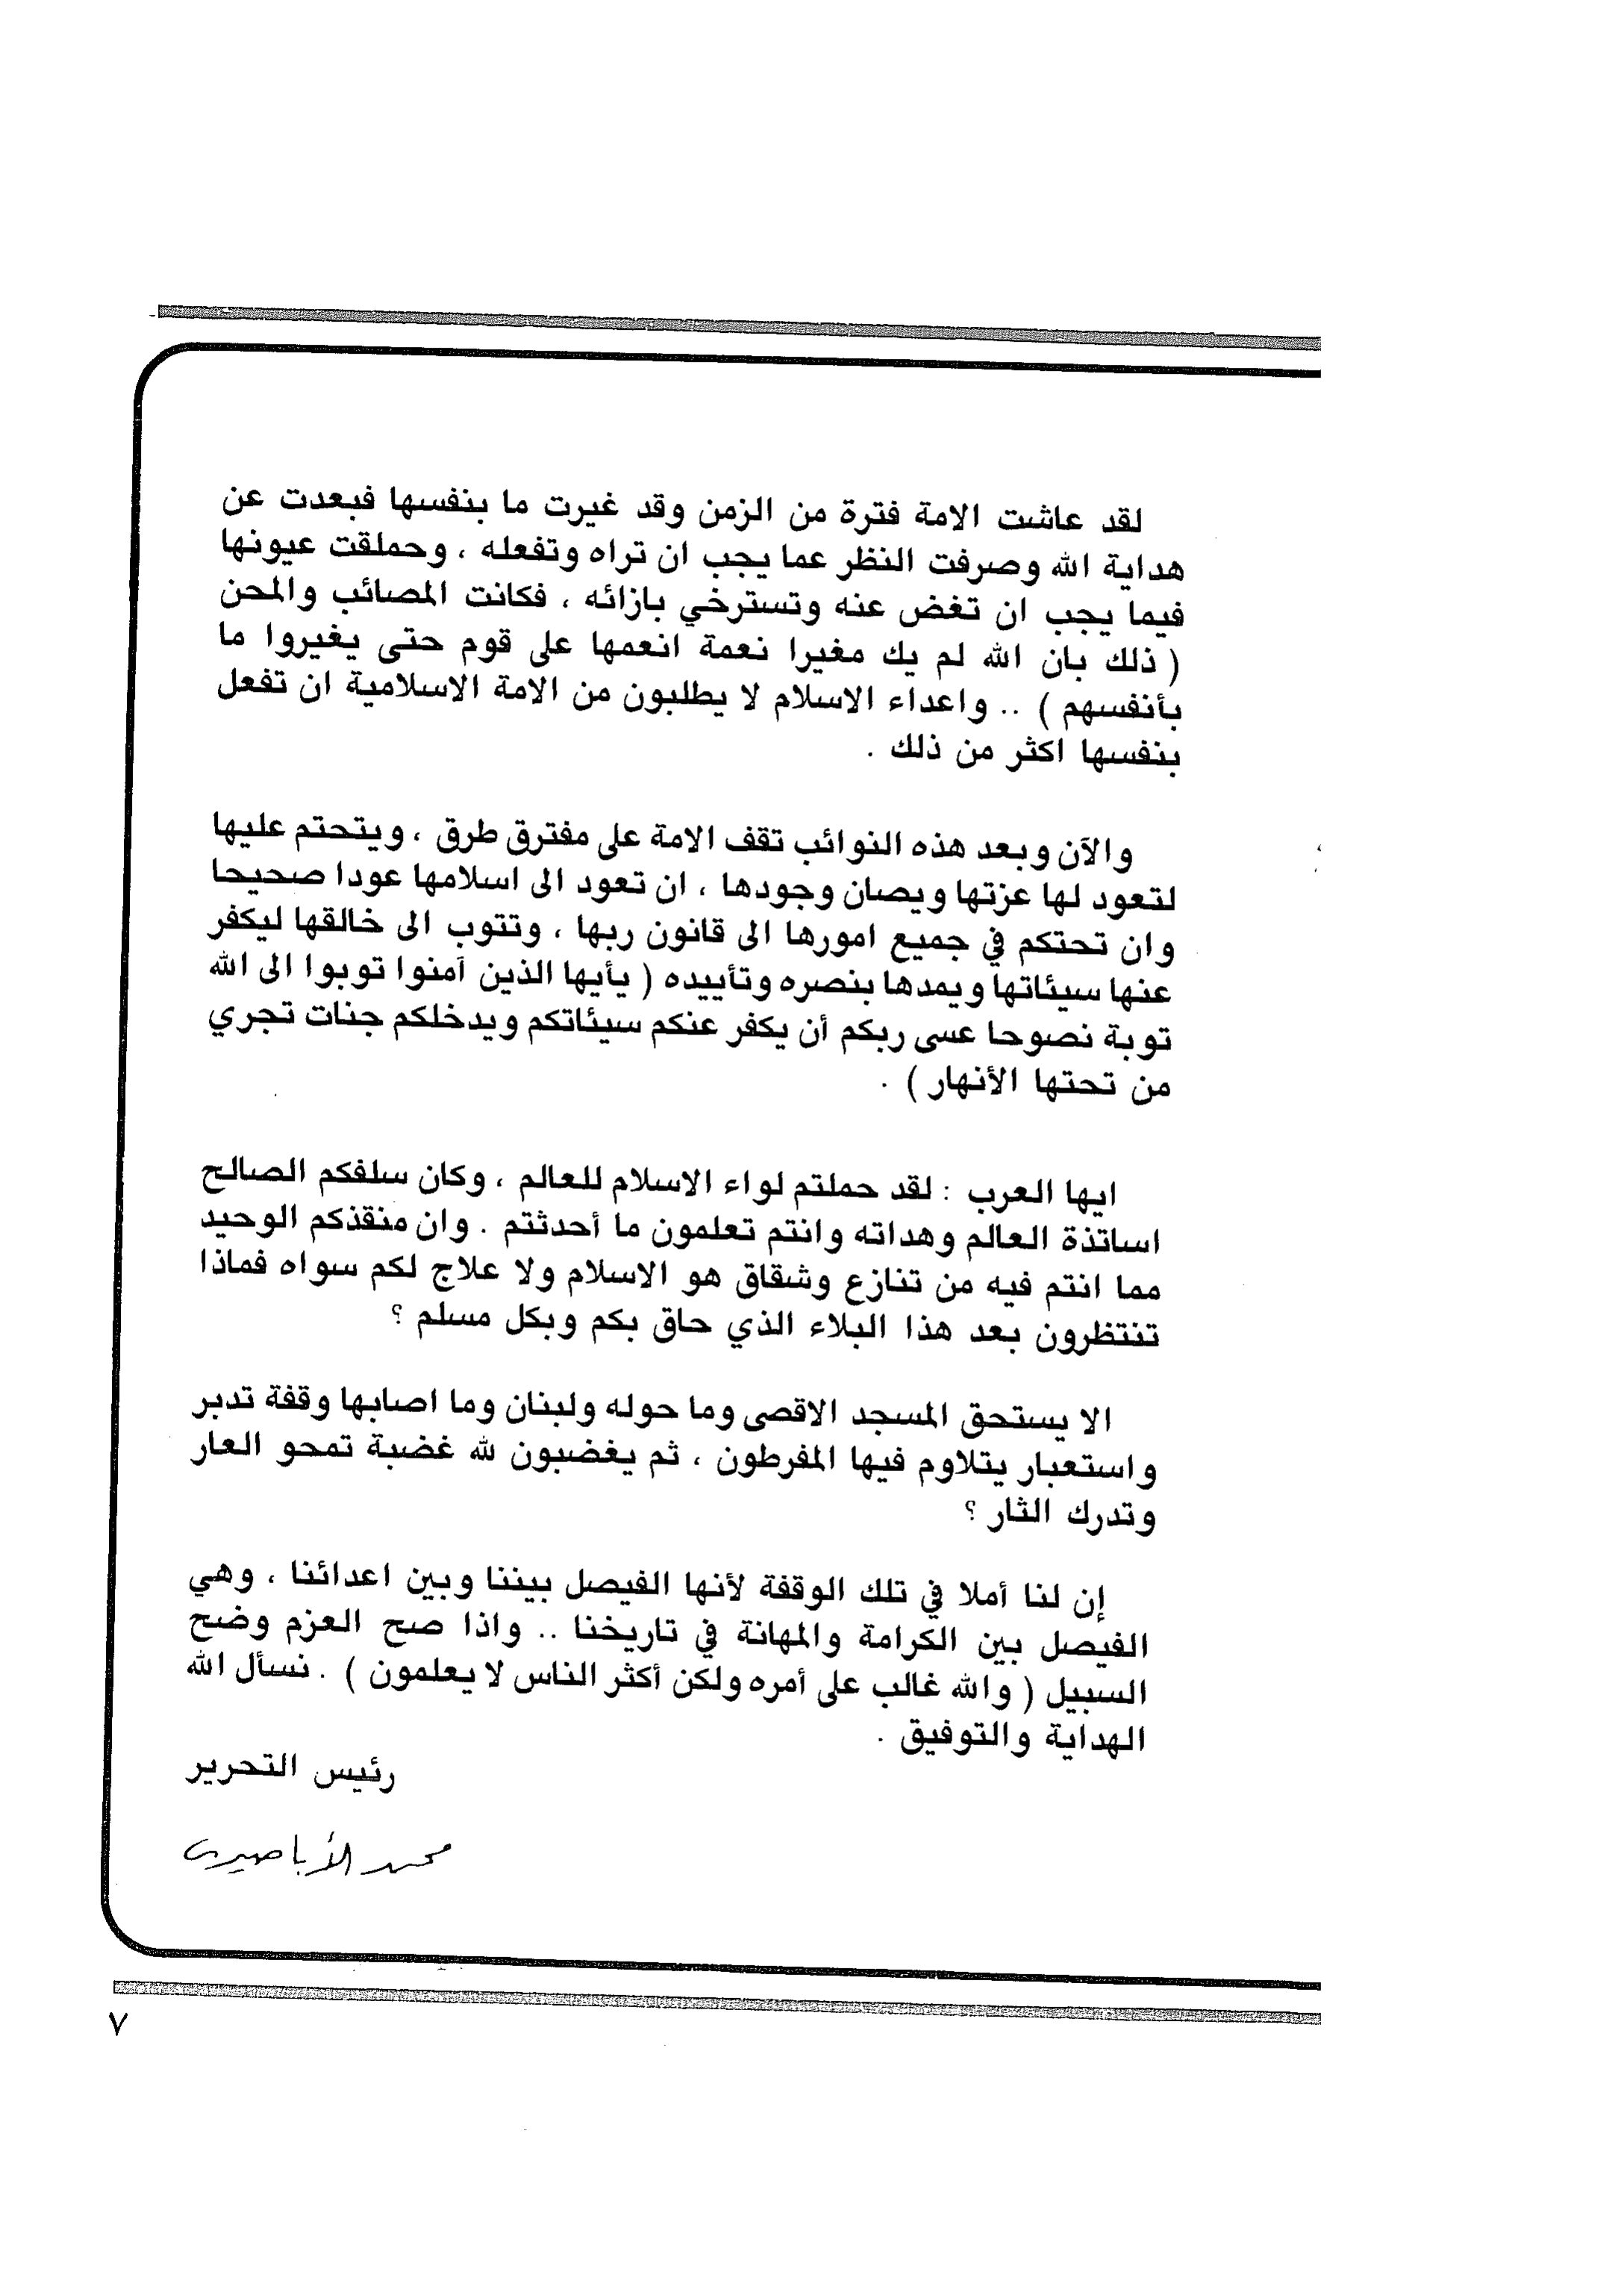 لقد عاشت الامة فترة من الزمن وقد غيرت ما بنفسها فبعدت عن
هداية الله وصرفت النظر عما يجب ان تراه وتفعله ، وحملقت عيونها
فيما يجب ان تغض عنه وتسترخي بازائه ، فكانت المصائب والمحن
( ذلك بان الله لم يك مغيرا نعمة انعمها على قوم حتى يغيروا ما
بأنفسهم ) .. واعداء الاسلام لا يطلبون من الامة الاسلامية ان تفعل
بنفسها اكثر من ذلك .
والآن وبعد هذه النوائب تقف الامة على مفترق طرق ، ويتحتم عليها
لتعود لها عزتها ويصان وجودها ، ان تعود الى اسلامها عودا صحيحا
وان تحتكم في جميع امورها الى قانون ربها ، وتتوب الى خالقها ليكفر
عنها سيئاتها ويمدها بنصره وتأييده ( يأيها الذين آمنوا توبوا الى الله
توبة نصوحا عسى ربكم أن يكفر عنكم سيئاتكم ويدخلكم جنات تجري
من تحتها الأنهار ) .
ايها العرب : لقد حملتم لواء الاسلام للعالم ، وكان سلفكم الصالح
اساتذة العالم وهداته وانتم تعلمون ما أحدثتم . وان منقذكم الوحيد
مما انتم فيه من تنازع وشقاق هو الاسلام ولا علاج لكم سواه فماذا
تنتظرون بعد هذا البلاء الذي حاق بكم وبكل مسلم ؟
الا يستحق المسجد الاقصى وما حوله ولبنان وما اصابها وقفة تدبر
واستعبار يتلاوم فيها المفرطون ، ثم يغضبون لله غضبة تمحو العار
وتدرك الثار ؟
إن لنا أملا في تلك الوقفة لأنها الفيصل بيننا وبين اعدائنا ، وهي
الفيصل بين الكرامة والمهانة في تاريخنا .. واذا صح العزم وضح
السبيل ( والله غالب على أمره ولكن أكثر الناس لا يعلمون ) . نسأل الله
الهداية والتوفيق .
رئيس التحرير
محمد الأباصيري
٧